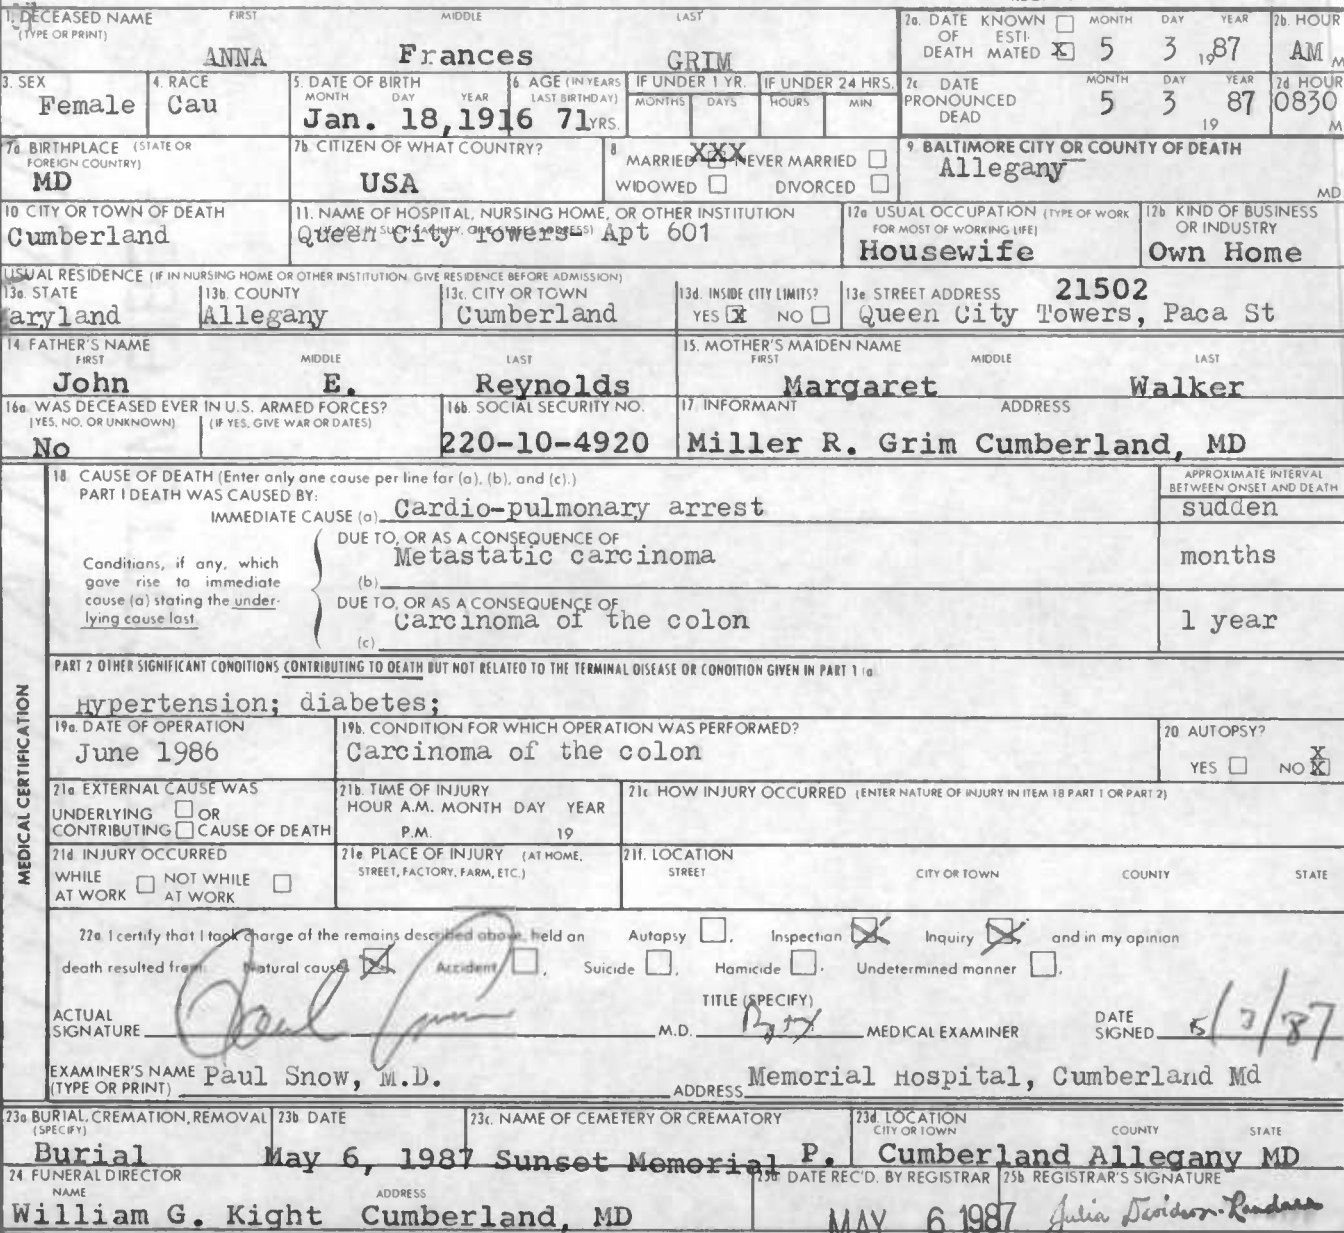 1. DECEASED NAME (TYPE OR PRINT) FIRST MIDDLE LAST
ANNA Frances GRIM
2a. DATE OF DEATH KNOWN ☐ ESTIMATED ☒ MONTH DAY YEAR 5 3 1987
2b. HOUR AM M
3. SEX Female
4. RACE Cau
5. DATE OF BIRTH MONTH DAY YEAR Jan. 18,1916
6. AGE (IN YEARS LAST BIRTHDAY) 71 YRS.
IF UNDER 1 YR. MONTHS DAYS
IF UNDER 24 HRS. HOURS MIN.
2c DATE PRONOUNCED DEAD MONTH DAY YEAR 5 3 1987
2d HOUR 0830 M
7a BIRTHPLACE (STATE OR FOREIGN COUNTRY) MD
7b. CITIZEN OF WHAT COUNTRY? USA
8 MARRIED XXX NEVER MARRIED ☐
WIDOWED ☐ DIVORCED ☐
9. BALTIMORE CITY OR COUNTY OF DEATH
Allegany MD
10 CITY OR TOWN OF DEATH
Cumberland
11. NAME OF HOSPITAL, NURSING HOME, OR OTHER INSTITUTION
(IF NOT IN SUCH FACILITY, GIVE STREET ADDRESS)
Queen City Towers- Apt 601
12a USUAL OCCUPATION (TYPE OF WORK FOR MOST OF WORKING LIFE)
Housewife
12b KIND OF BUSINESS OR INDUSTRY
Own Home
USUAL RESIDENCE (IF IN NURSING HOME OR OTHER INSTITUTION GIVE RESIDENCE BEFORE ADMISSION)
13a. STATE aryland
13b. COUNTY Allegany
13c. CITY OR TOWN Cumberland
13d. INSIDE CITY LIMITS? YES ☒ NO ☐
13e STREET ADDRESS 21502
Queen City Towers, Paca St
14 FATHER'S NAME FIRST MIDDLE LAST
John E. Reynolds
15. MOTHER'S MAIDEN NAME FIRST MIDDLE LAST
Margaret Walker
16a. WAS DECEASED EVER IN U.S. ARMED FORCES?
(YES, NO, OR UNKNOWN) (IF YES, GIVE WAR OR DATES)
No
16b. SOCIAL SECURITY NO.
220-10-4920
17. INFORMANT ADDRESS
Miller R. Grim Cumberland, MD
MEDICAL CERTIFICATION
18 CAUSE OF DEATH (Enter only one cause per line for (a), (b), and (c).)
PART I DEATH WAS CAUSED BY:
APPROXIMATE INTERVAL BETWEEN ONSET AND DEATH
IMMEDIATE CAUSE (a) Cardio-pulmonary arrest sudden
Conditions, if any, which gave rise to immediate cause (a) stating the underlying cause last
DUE TO, OR AS A CONSEQUENCE OF
(b) Metastatic carcinoma months
DUE TO, OR AS A CONSEQUENCE OF
(c) Carcinoma of the colon 1 year
PART 2 OTHER SIGNIFICANT CONDITIONS CONTRIBUTING TO DEATH BUT NOT RELATED TO THE TERMINAL DISEASE OR CONDITION GIVEN IN PART 1 (a
Hypertension; diabetes;
19a. DATE OF OPERATION
June 1986
19b. CONDITION FOR WHICH OPERATION WAS PERFORMED?
Carcinoma of the colon
20 AUTOPSY?
X
YES ☐ NO ☒
21a EXTERNAL CAUSE WAS
UNDERLYING ☐ OR
CONTRIBUTING ☐ CAUSE OF DEATH
21b. TIME OF INJURY
HOUR A.M. MONTH DAY YEAR
P.M. 19
21c HOW INJURY OCCURRED (ENTER NATURE OF INJURY IN ITEM 18 PART 1 OR PART 2)
21d INJURY OCCURRED
WHILE AT WORK ☐ NOT WHILE AT WORK ☐
21e PLACE OF INJURY (AT HOME, STREET, FACTORY, FARM, ETC.)
21f. LOCATION
STREET CITY OR TOWN COUNTY STATE
22a I certify that I took charge of the remains described above, held an Autopsy ☐, Inspection ☒ Inquiry ☒ and in my opinion
death resulted from: Natural cause ☒ Accident ☐, Suicide ☐, Homicide ☐. Undetermined manner ☐.
ACTUAL SIGNATURE Paul Snow M.D.
TITLE (SPECIFY) MEDICAL EXAMINER
DATE SIGNED 5/3/87
EXAMINER'S NAME (TYPE OR PRINT) Paul Snow, M.D.
ADDRESS Memorial Hospital, Cumberland Md
23a BURIAL, CREMATION, REMOVAL (SPECIFY)
Burial
23b DATE
May 6, 1987
23c. NAME OF CEMETERY OR CREMATORY
Sunset Memorial P.
23d. LOCATION CITY OR TOWN COUNTY STATE
Cumberland Allegany MD
24 FUNERAL DIRECTOR
NAME ADDRESS
William G. Kight Cumberland, MD
25a DATE REC'D. BY REGISTRAR
MAY 6 1987
25b REGISTRAR'S SIGNATURE
Julia Davidson-Randall